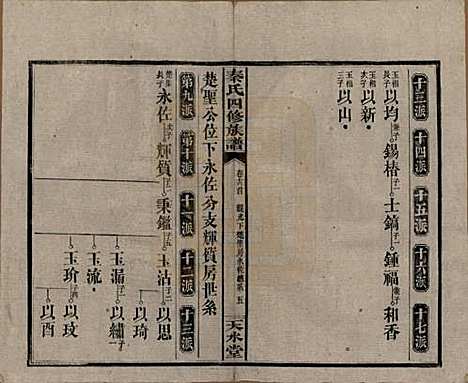 十三派 十四派 十五派 十六派 十七派
玉相長子 以均 錫椿 士鎬 鍾福 和香
玉相 以新
玉相三子 以山
秦氏四修族譜
卷六首
五
天水堂
楚聖公位下永佐分支輝質房世系
第九派 第十派 十一派 十二派 十三派
楚聖長子 永佐 輝質 秉鑑 玉沾 以思
以琦
玉漏 以繡
玉流
玉玠 以玟
以酉